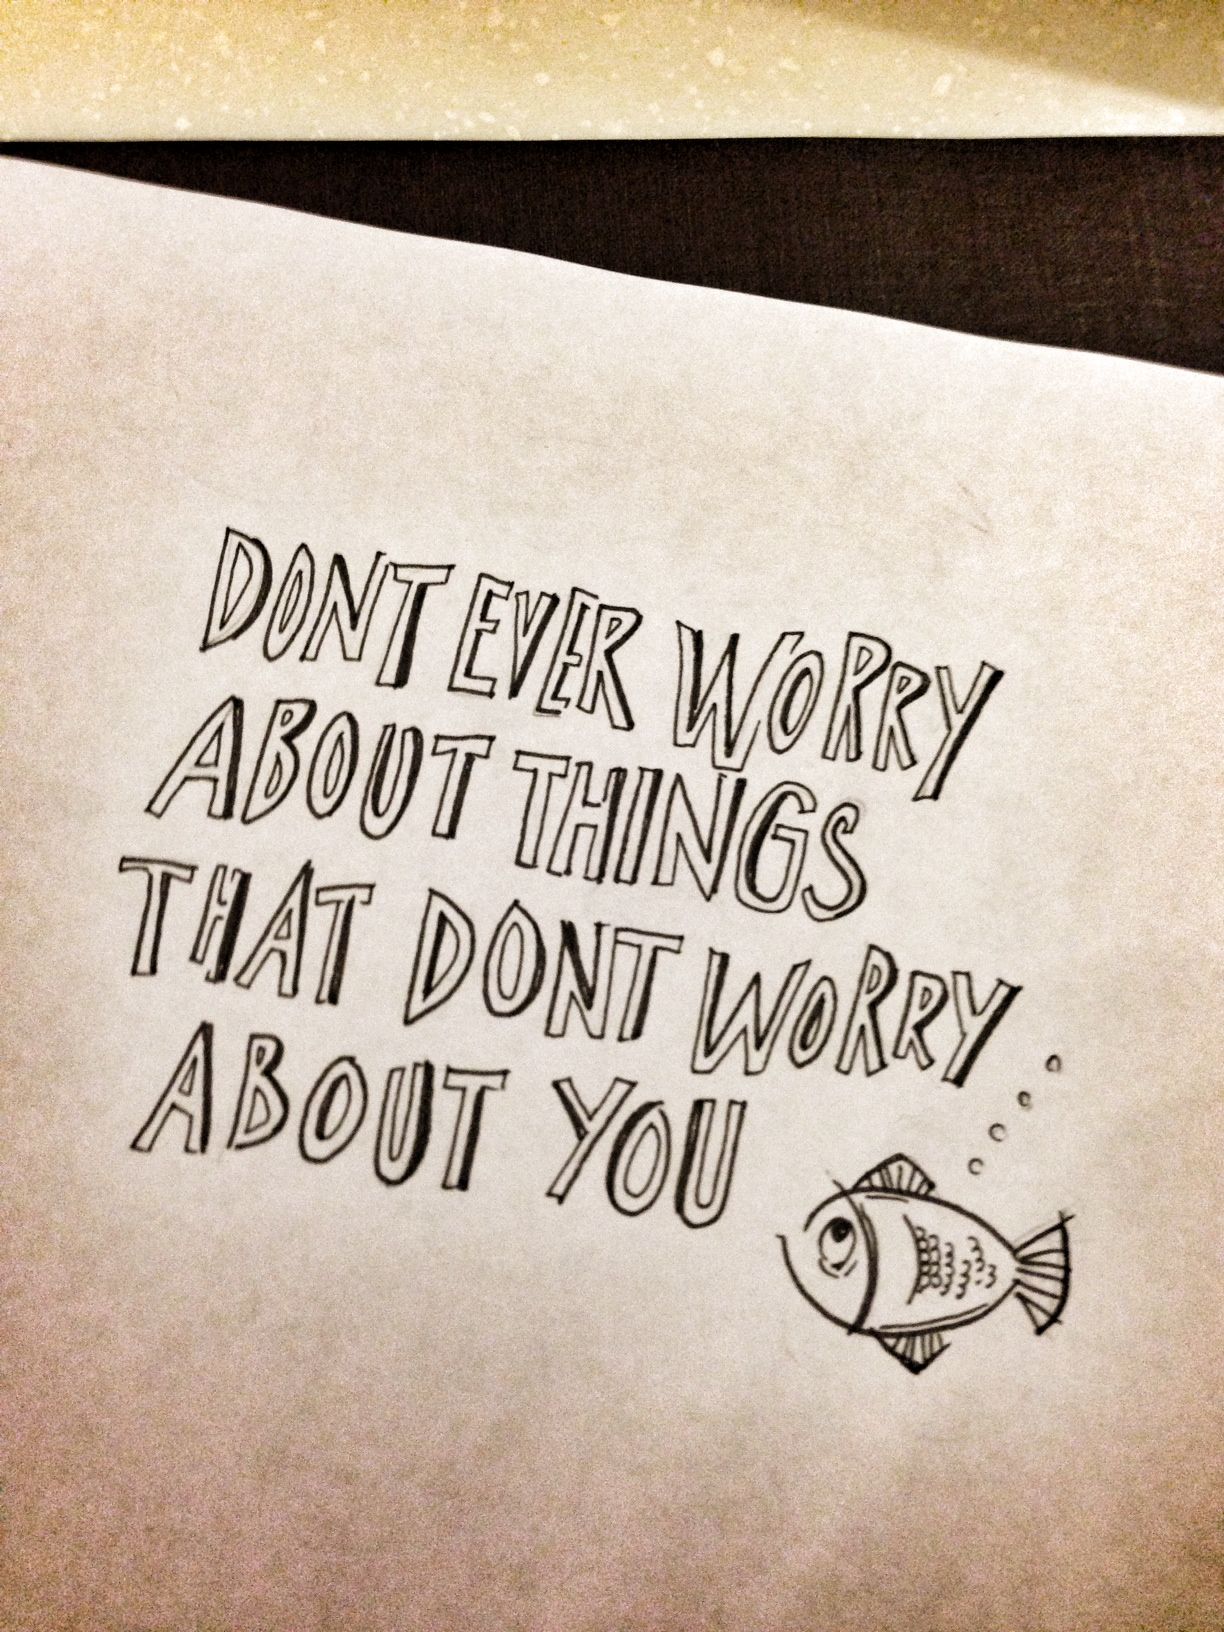 DONT EVER WORRY
ABOUT THINGS
THAT DONT WORRY
ABOUT YOU